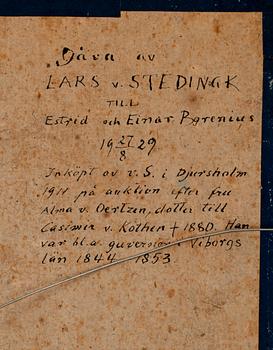 Gåva av
LARS v. STEDINGK
TILL
Estrid och Einar Pyrenius
19 27/8 29
Inköpt av v. S. i Djursholm
1911 på auktion efter fru
Alma v. Oertzen, dotter till
Casimir v. Kothen + 1880. Han
var bl.a. guvernör i Viborgs
län 1844 - 1853